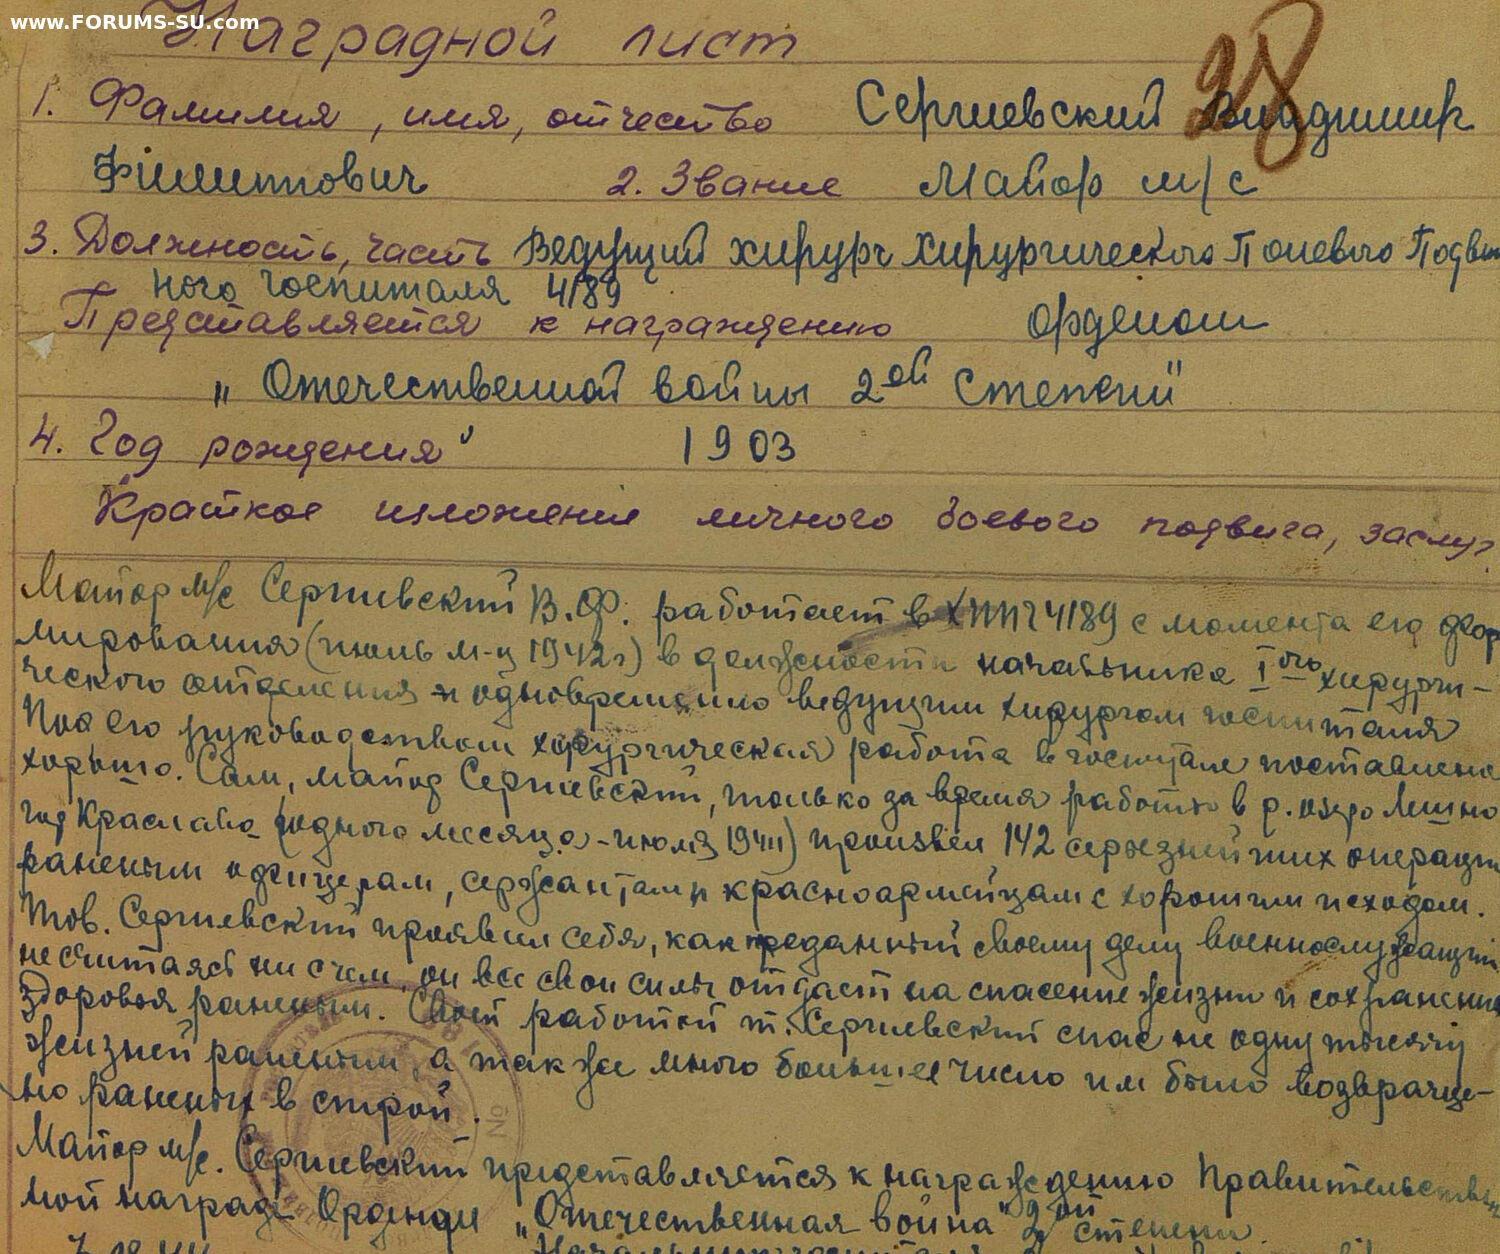 www.FORUMS-SU.com
Наградной лист
28
1. Фамилия, имя, отчество Сергиевский Владимир
Филиппович 2. Звание Майор м/с
3. Должность, часть Ведущий хирург Хирургического Полевого Подвиж
ного госпиталя 4189
Представляется к награждению орденом
„Отечественной войны 2ой Степени"
4. Год рождения 1903
Краткое изложение личного боевого подвига, заслуг
Майор м/с Сергиевский В.Ф. работает в ХППГ 4189 с момента его фор
мирования (июль м-ц 1942г) в должности начальника I ого хирурги-
ческого отделения и одновременно ведущим хирургом госпиталя
Под его руководством хирургическая работа в госпитале поставлена
хорошо. Сам, майор Сергиевский, только за время работы в р. озеро Лишно
гор Краслава (одного месяца - июля 1944) произвел 142 серьезнейших операции
раненым офицерам, сержантам и красноармейцам с хорошим исходом.
Тов. Сергиевский проявил себя, как преданный своему делу военнослужащий
не считаясь ни с чем, он все свои силы отдает на спасение жизни и сохранение
здоровья раненым. Своей работой т. Сергиевский спас не одну тысячу
жизней раненым, а так же много большее число им было возвраще-
но раненых в строй.
Майор м/с. Сергиевский представляется к награждению Правительствен
ной награде Орденом „Отечественная война" 2ой степени.
Начальник госпиталя